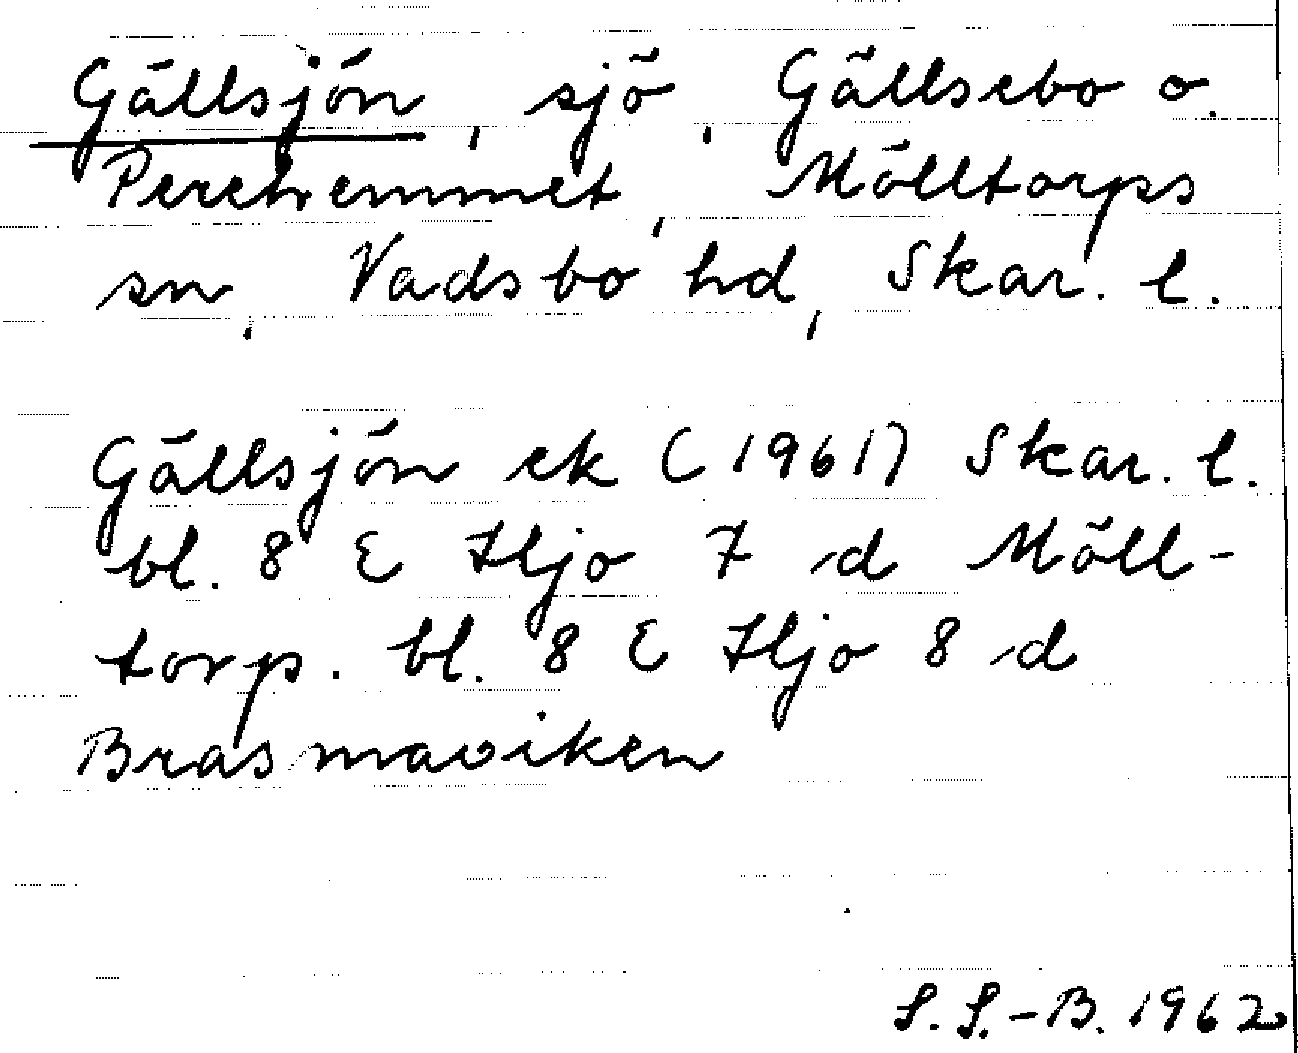 Gällsjön, sjö, Gällsebo o.
Perehemmet, Mölltorps
sn, Vadsbo hd, Skar. l.
Gällsjön ek (1961) Skar. l.
bl. 8 E Hjo 7 d Möll-
torp. bl. 8 E Hjo 8 d
Brasmaviken
S. S.-B. 1962